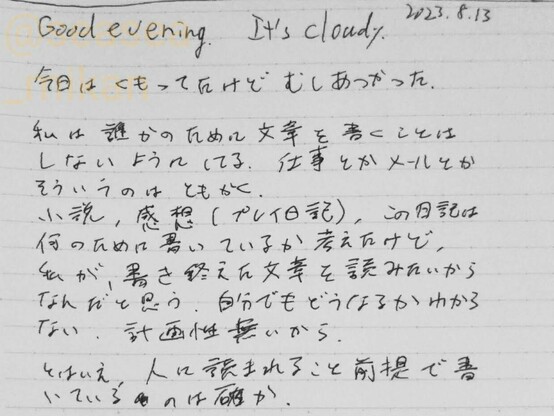 Good evening. It's cloudy. 2023.8.13
今日はくもってたけどむしあつかった.
私は誰かのために文章を書くことは
しないようにしてる. 仕事とかメールとか
そういうのはともかく.
小説, 感想(プレイ日記), この日記は
何のために書いているか考えたけど,
私が, 書き終えた文章を読みたいから
なんだと思う. 自分でもどうなるかわから
ない. 計画性無いから.
とはいえ, 人に読まれること前提で書
いているのは確か.